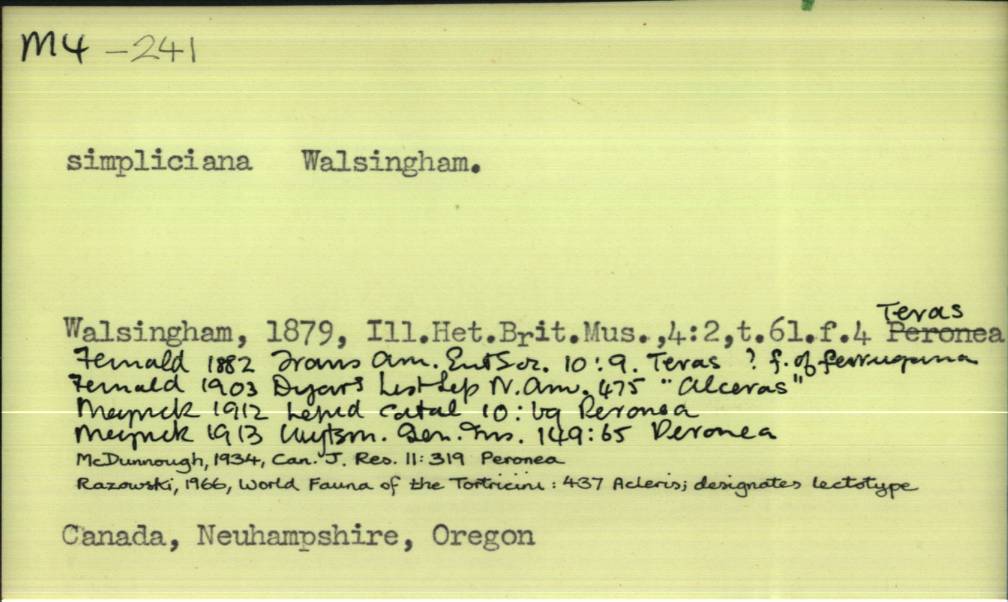 M4 -241
simpliciana Walsingham.
Teras
Walsingham, 1879, Ill.Het.Brit.Mus.,4:2,t.61.f.4 Peronea
Fernald 1882 Trans Am. Ent Soc. 10:9. Teras ? f. of ferrugana
Fernald 1903 Dyar's List Lep N. Am. 475 "Alceras"
Meyrick 1912 Lepid Catal 10:69 Peronea
Meyrick 1913 Wytsm. Gen. Ins. 149:65 Peronea
McDunnough, 1934, Can. J. Res. 11:319 Peronea
Razowski, 1966, World Fauna of the Tortricini: 437 Acleris; designates lectotype
Canada, Neuhampshire, Oregon